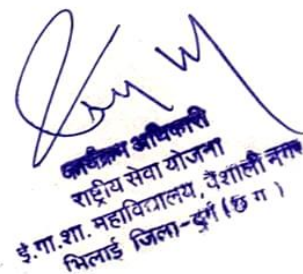 कार्यक्रम अधिकारी
राष्ट्रीय सेवा योजना
इं.गा.शा. महाविद्यालय, वैशाली नगर
भिलाई जिला-दुर्ग (छ ग )